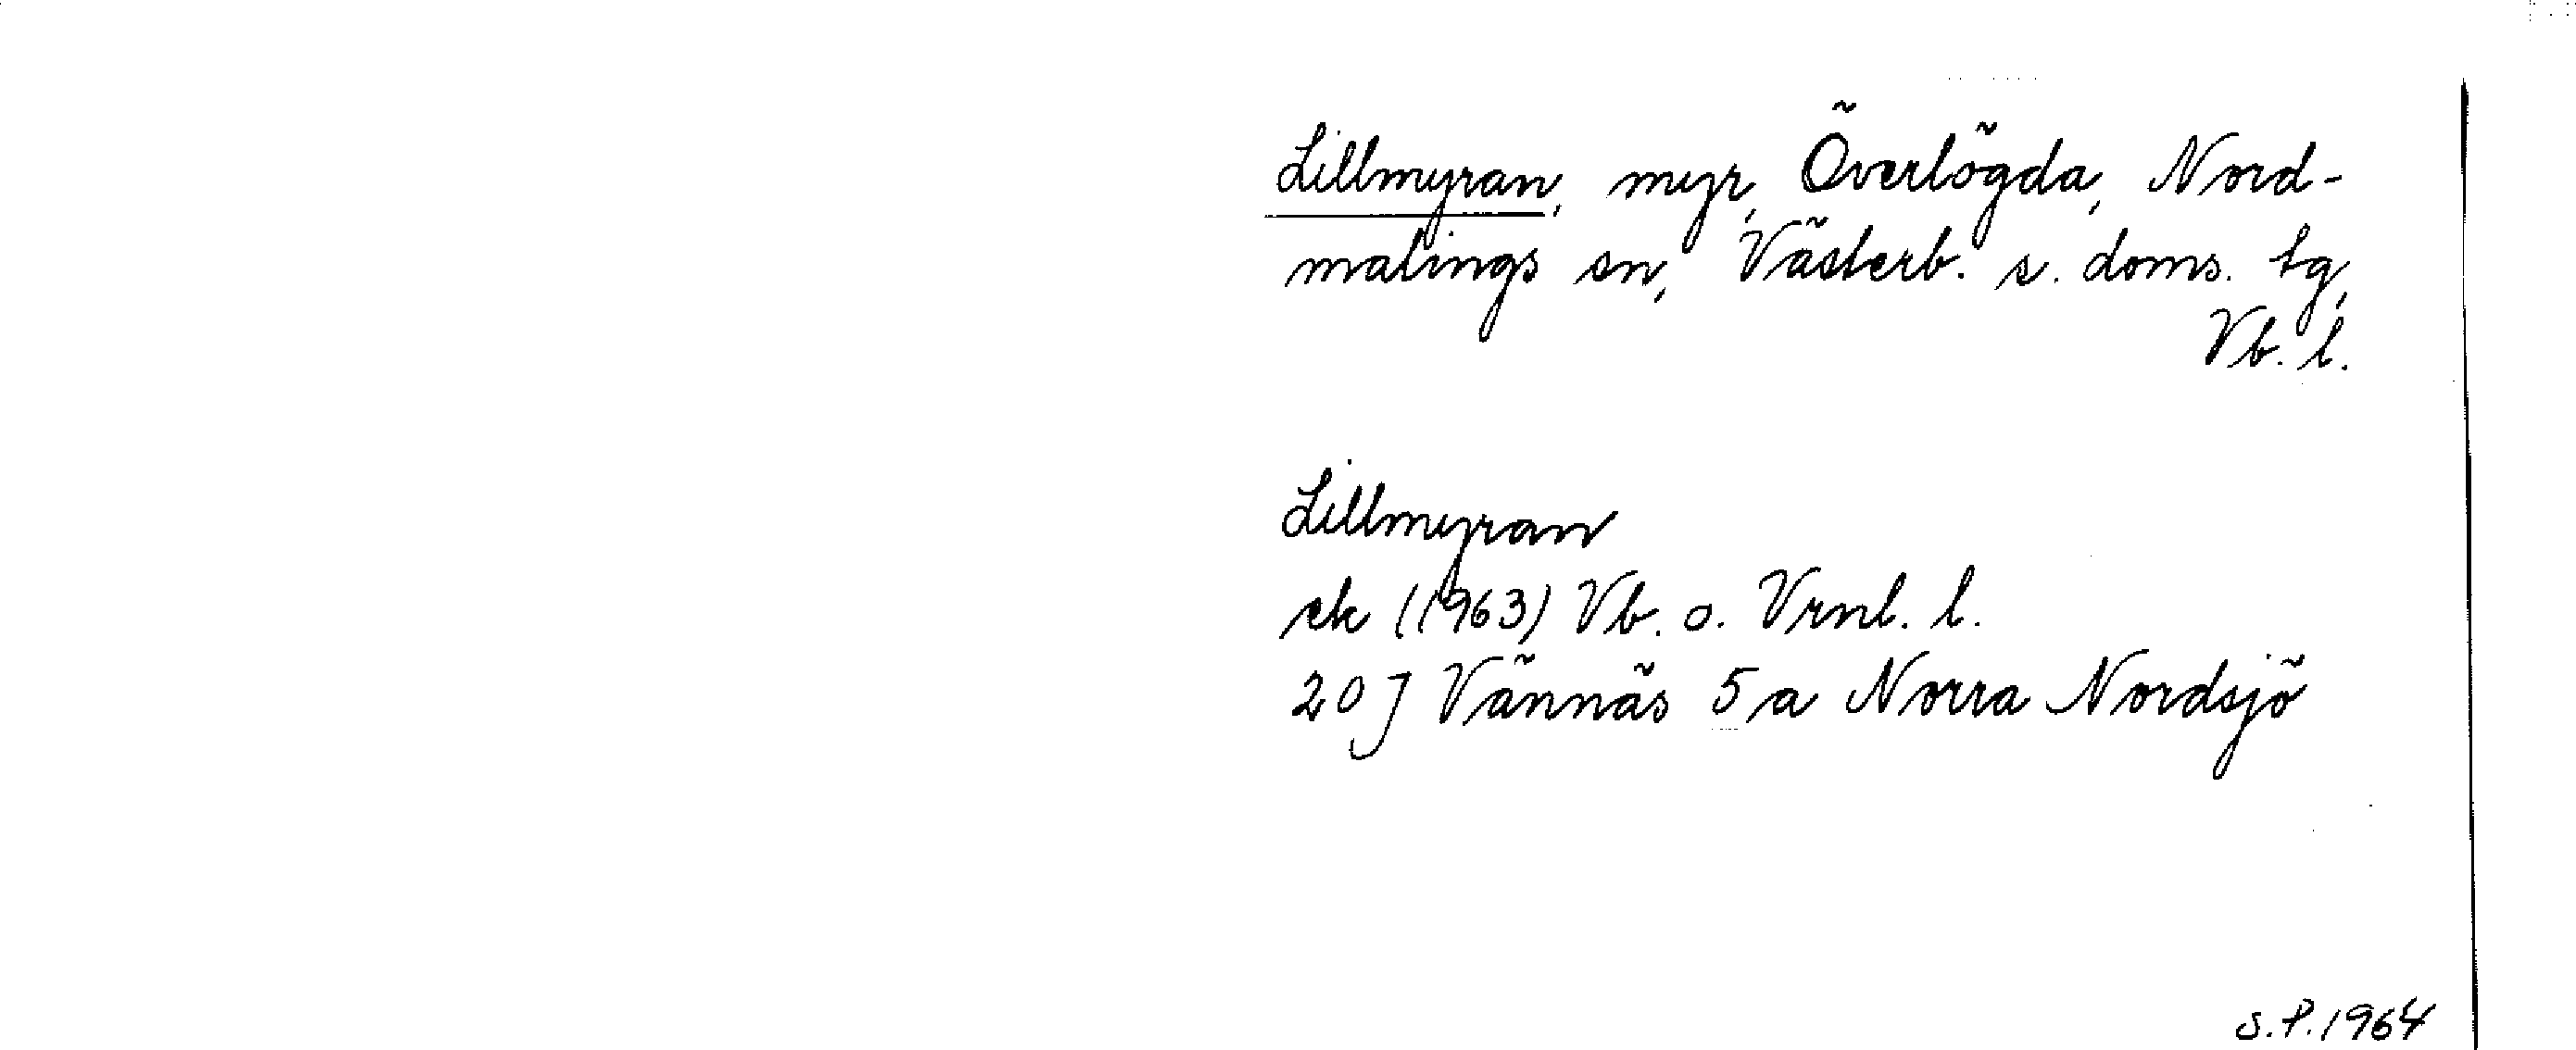 Lillmyran, myr, Överlögda, Nord-
malings sn, Västerb. s. doms. tg,
Vb. l.
Lillmyran
ek (1963) Vb. o. Vrnl. l.
20 J Vännäs 5 a Norra Nordsjö
S.P. 1964